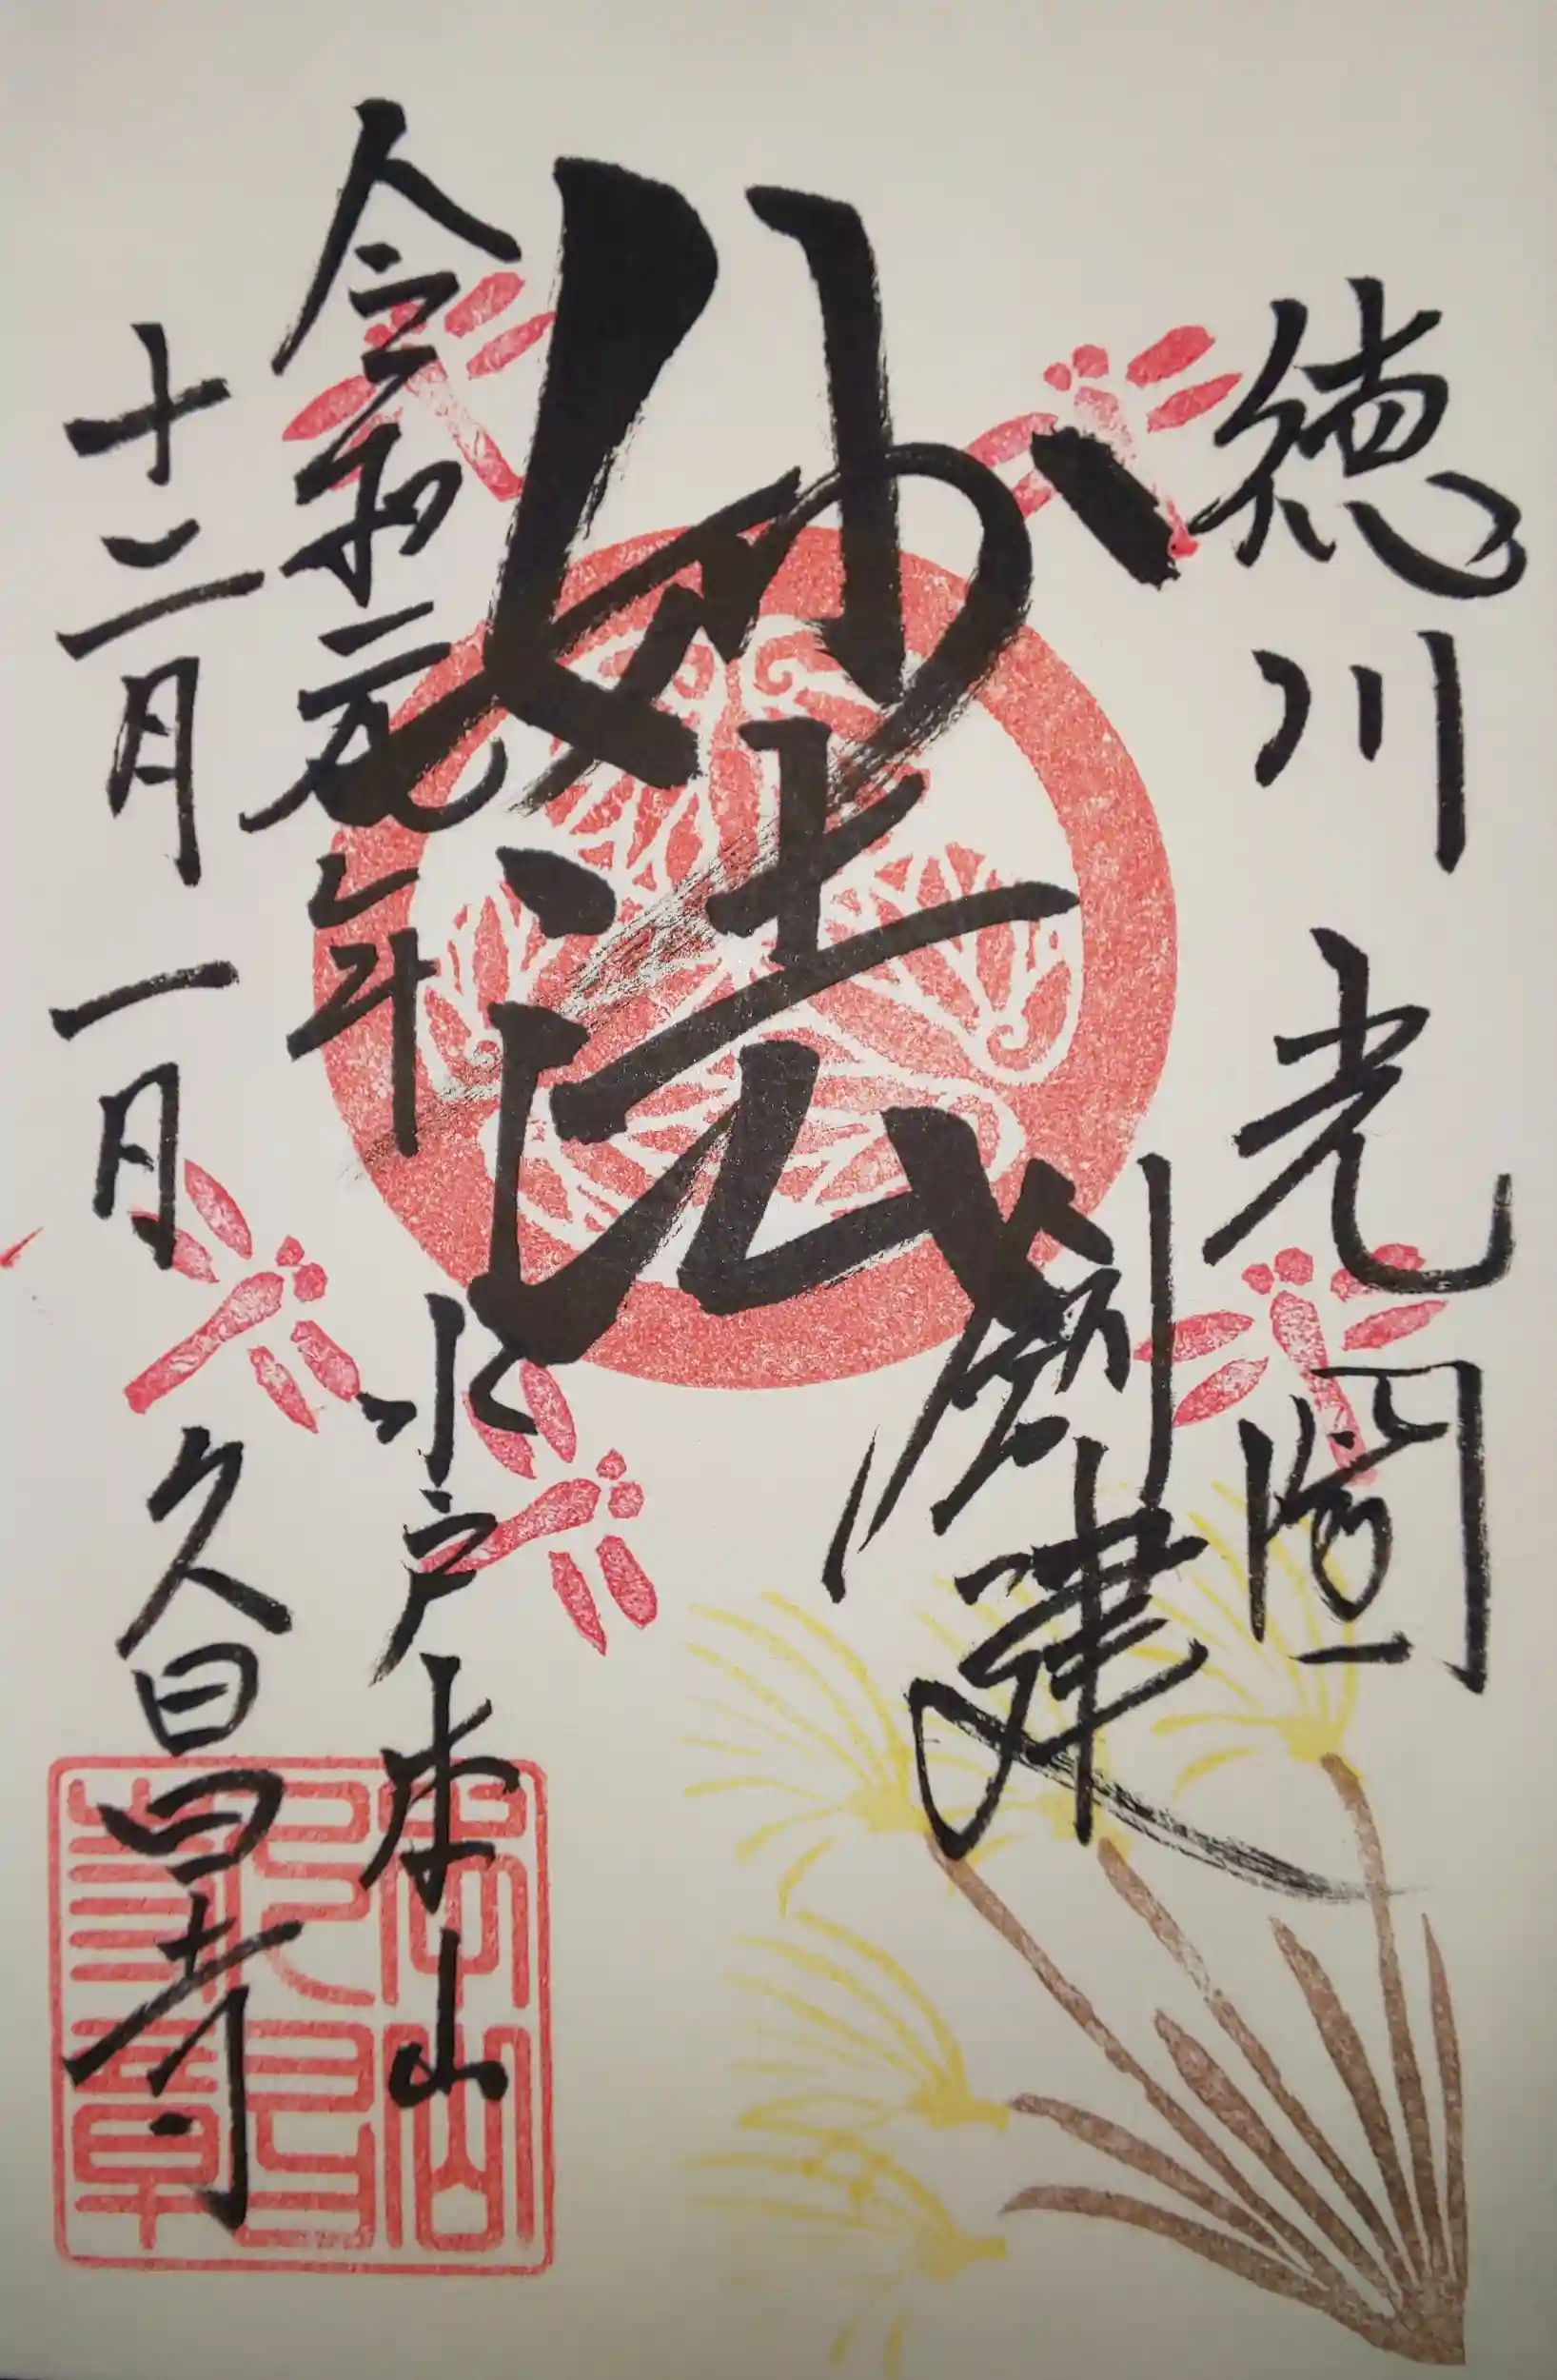 徳川光圀
創建
妙法
令和元年
十二月一月
水戸本山
久昌寺